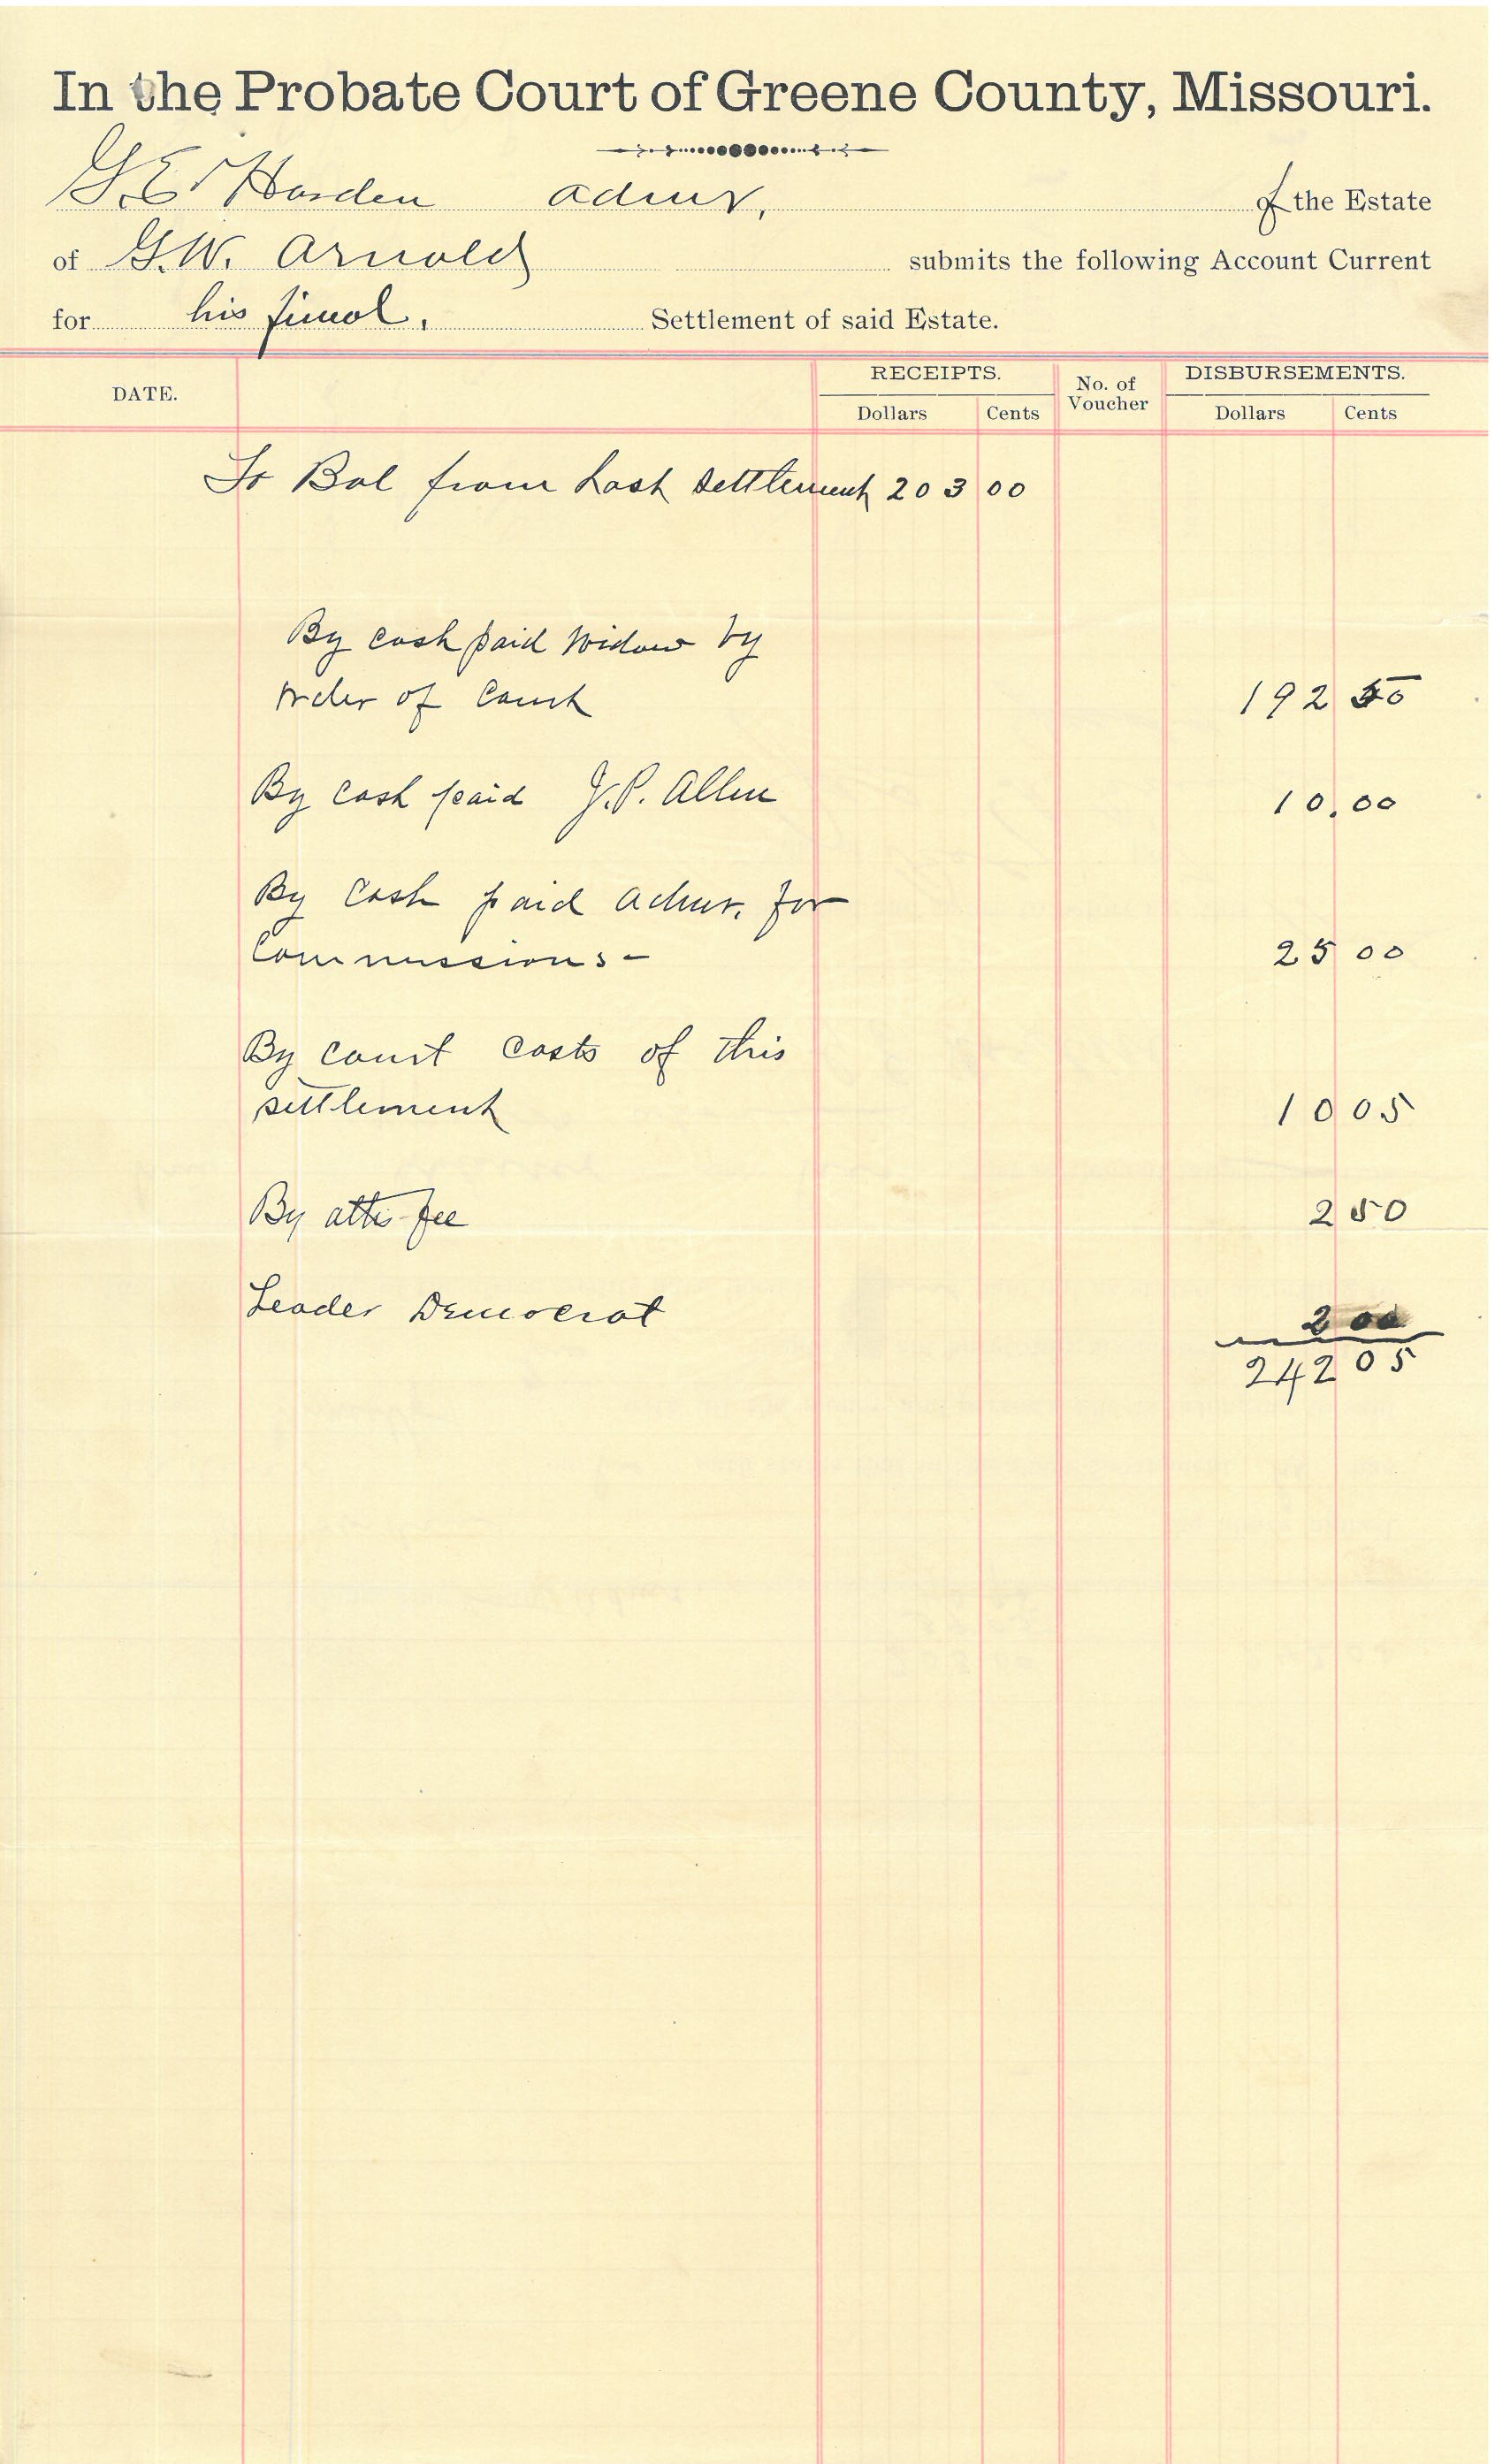 In the Probate Court of Greene County, Missouri.
G.E. Harden admr, of the Estate
of G.W. Arnold submits the following Account Current
for his final, Settlement of said Estate.
DATE. RECEIPTS. Dollars Cents No. of Voucher DISBURSEMENTS. Dollars Cents
To Bal from Last settlement 203 00
By cash paid Widow by
order of Court 192 50
By cash paid J.P. Allen 10.00
By Cash paid admr. for
Commissions - 25 00
By court costs of this
settlement 10 05
By atty fee 2 50
Leader Democrat 2 00
242 05